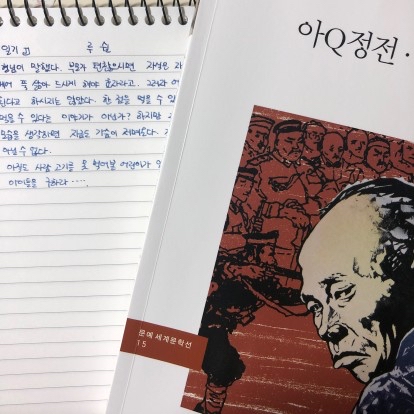 일기』
루쉰
형님이 말했다. 부모가 편찮으시면 자식은
푹 삶아 드시게 해야
하지는 않았다. 한 점을 먹을 수 있
먹을 수 있다는 이야기가 아닌가? 하지만
모습을 생각하면 지금도 가슴이 저며온다.
아직도 사람 고기를 못 먹어본 어린이가
아이들을 구하라……
아Q정전·
문예 세계문학선
15